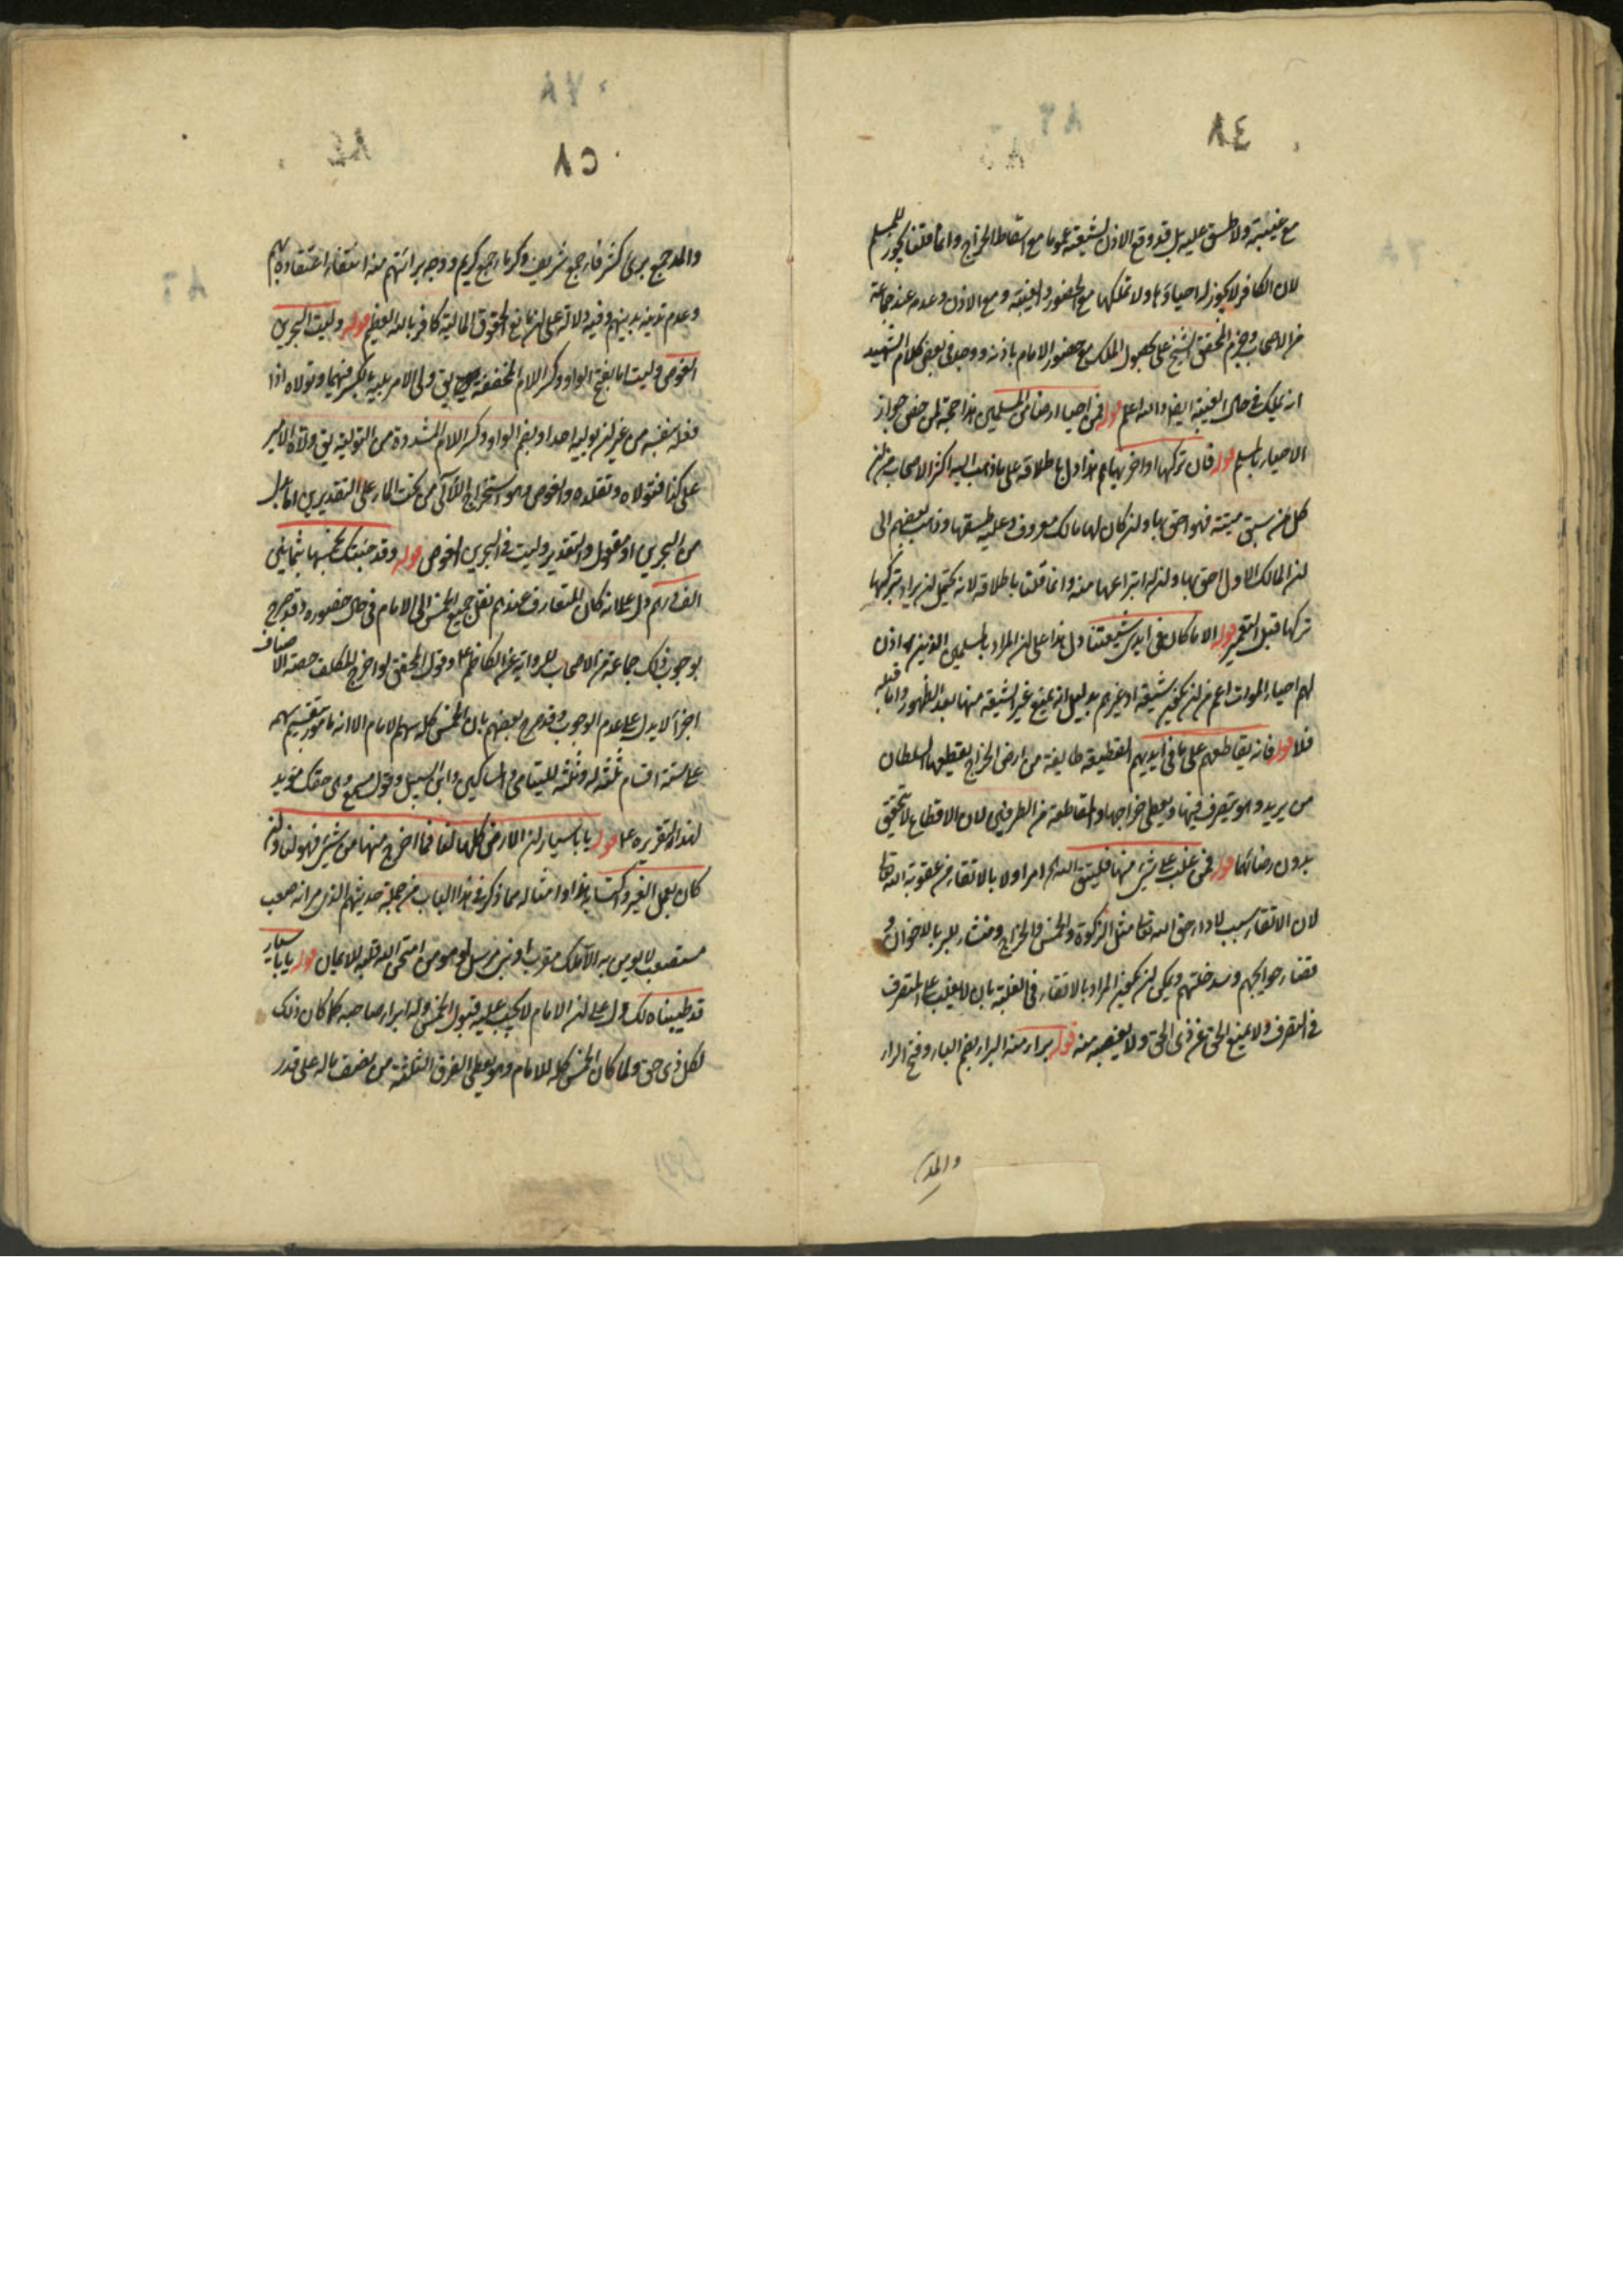 مع غيبته ولا طسق عليه بل قد وقع الاذن لشيعته عموما مع اسقاط الخراج وانما قلنا يجوز للمسلم
لان الكافر لا يجوز له احياؤها ولا تملكها مع الحضور والغيبة ومع الاذن وعدمه عند جماعة
من الاصحاب وجزم المحقق الشيخ على بحصول الملك مع حضور الامام باذنه ووجد فى بعض كلام الشهيد
انه يملك فى حال الغيبة ايضا والله اعلم قوله فمن احيا ارضا من المسلمين هذا حجة لمن خص جواز
الاحياء بالمسلم قوله فان تركها او اخربها هذا دل باطلاقه على ما ذهب اليه اكثر الاصحاب من ان
كل من سبق ميتة فهو احق بها وان كان لها مالك معروف وعليه طسقها وذهب بعضهم الى
ان المالك الاول احق بها وان له انتزاعها منه وانما قلنا باطلاقه لانه يحتمل ان يراد بتركها
تركها قبل التعمير قوله الا ما كان فى ايدى شيعتنا دل هذا على ان المراد بالمسلمين الذين اذن
لهم احياء الموات اعم من ان يكون شيعة او غيرهم بدليل انه يمنع غير الشيعة منها بعد الظهور واما قبله
فلا قوله فانه يقاطعهم على ما فى ايديهم القطيعة طايفة من ارض الخراج يقطعها السلطان
من يريد وهو يتصرف فيها ويعطى خراجها والمقاطعة من الطرفين لان الاقطاع لا يتحقق
بدون رضائهما قوله فمن غلب على شئ منها فليتق الله امر اولا بالاتقاء من عقوبة الله تعا
لان الاتقاء سبب لاداء حق الله تعا مثل الزكوة والخمس والخراج ومنشاء للبر بالاخوان و
قضاء حوايجهم وسد خلتهم ويمكن ان يكون المراد بالاتقاء فى الغلبة بان لا يغلب على المتصرف
فى التصرف ولا يمنع الحق عن ذى الحق ولا يغصبه منه قوله براء منه البراء بضم الباء وفتح الراء
والمد
والمد جمع برئ كشرفاء جمع شريف وكرماء جمع كريم ووجه برائتهم منه انتفاء اعتقاده بهم
وعدم تدينه بدينهم وفيه دلالة على ان مانع الحقوق المالية كافر بالله العظيم قوله وليت البحرين
الغوص وليت اما بفتح الواو وكسر اللام المخففة يق ولى الامر يليه بالكسر فيهما وتولاه اذا
فعله بنفسه من غير ان يوليه احدا او بضم الواو وكسر اللام المشددة من التولية يق ولاه الامير
على كذا فتولاه وتقلده والغوص هو استخراج اللآلى من تحت الماء على التقديرين اما بدل
من البحرين او مفعول والتقدير وليت فى البحرين الغوص قوله وقد جئتك بخمسها بثمانين
الف درهم دل على انه كان المتعارف عندهم نقل جميع الخمس الى الامام فى حال حضوره وقد صرح
بوجوب ذلك جماعة من الاصحاب للرواية عن الكاظم ع وقول المحقق لو اخرج المكلف حصة الاصناف
اجزأ لا يدل على عدم الوجوب وقد صرح بعضهم بان الخمس كله سهم الامام الا انه مامور بتقسيم سهمه
على ستة اقسام ثلثة له وثلثة لليتامى والمساكين وابن السبيل وقول مسمع وهى حقك مؤيد
لهذا وتقريره ع قوله يا با سيار ان الارض كلها لنا فما اخرج منها من شئ فهو لنا وان
كان بعمل الغير واكتسابه هذا وامثاله مما ذكر فى هذا الباب من جملة حديثهم الذى مر انه صعب
مستصعب لا يؤمن به الا ملك مقرب او نبى مرسل او مؤمن امتحن الله قلبه للايمان قوله يا با سيار
قد طيبناه لك دل على ان الامام لا يجب عليه قبول الخمس وله ابراء صاحبه كما كان ذلك
لكل ذى حق ولما كان الخمس كله للامام وهو يعطى الفرق الثلثة من نصف ماله على قدر